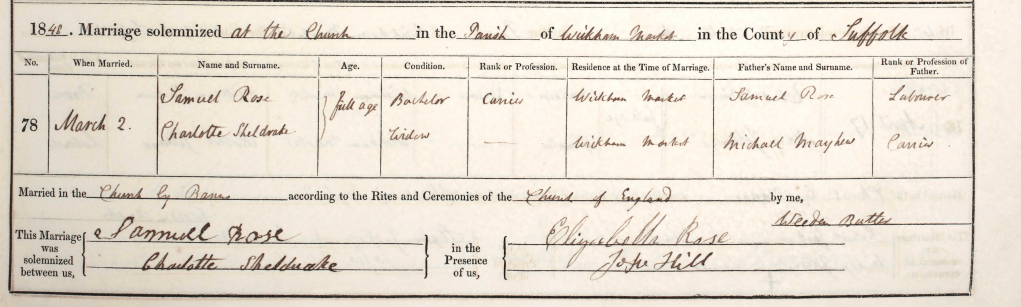 1848. Marriage solemnized at the Church in the Parish of Wickham Market in the County of Suffolk
No. When Married. Name and Surname. Age. Condition. Rank or Profession. Residence at the Time of Marriage. Father's Name and Surname. Rank or Profession of Father.
Samuel Rose full age Bachelor Carrier Wickham Market Samuel Rose Labourer
78 March 2. Charlotte Sheldrake Widow — Wickham Market Michael Mayhew Carrier
Married in the Church by Banns according to the Rites and Ceremonies of the Church of England by me,
Weeden Butter
This Marriage was solemnized between us, Samuel Rose in the Presence of us, Elizabeth Rose
Charlotte Sheldrake Hill